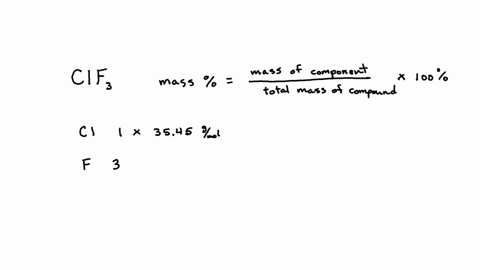 ClF₃ mass % = mass of component / total mass of compound × 100%
Cl 1 × 35.45 g/mol
F 3